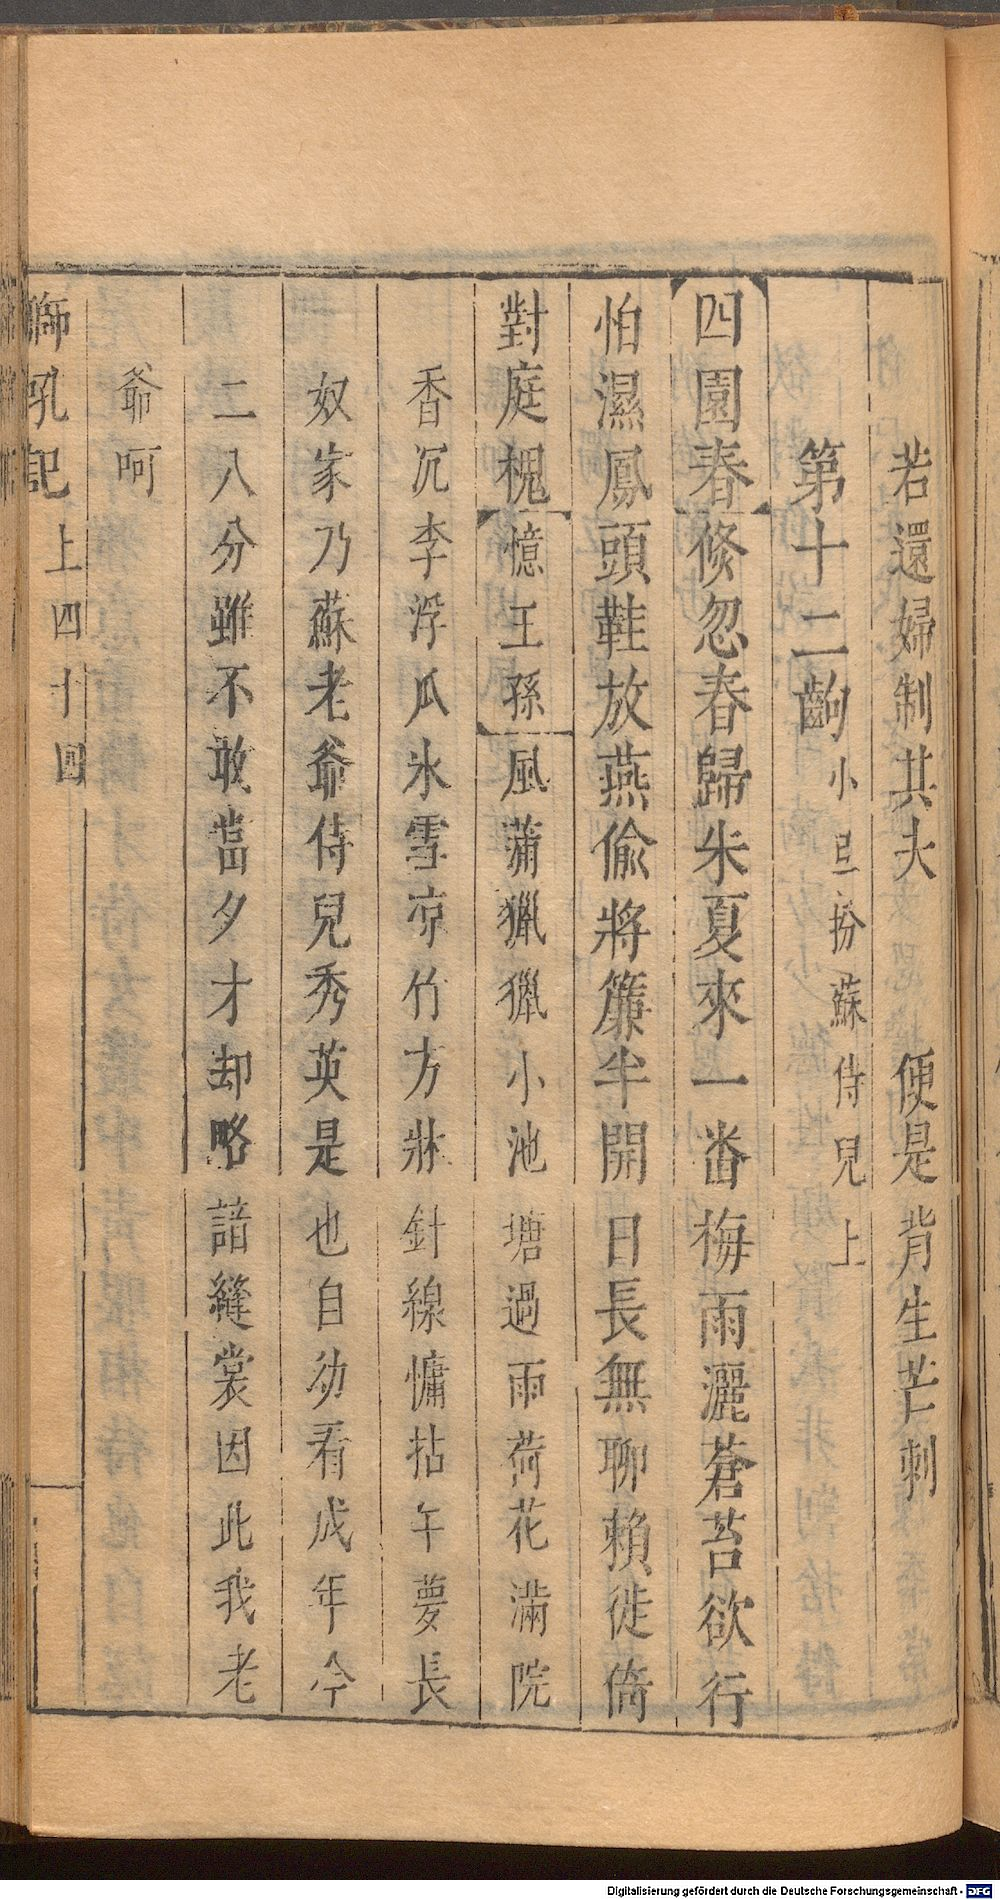 若還婦制共夫　便是背生芒刺
第十二齣　小旦扮蘇侍兒上
四園春　倐忽春歸朱夏來一番梅雨灑蒼苔欲行
怕濕鳳頭鞋放燕偸將簾半開日長無聊賴徙倚
對庭槐　憶王孫　風蒲獵獵小池塘過雨荷花滿院
香沉李浮瓜氷雪凉竹方牀針線慵拈午夢長
奴家乃蘇老爺侍兒秀英是也自幼看成年今
二八分雖不敢當夕才却略諳縫裳因此我老
爺呵
獅吼記　上　四十四
Digitalisierung gefördert durch die Deutsche Forschungsgemeinschaft - DFG